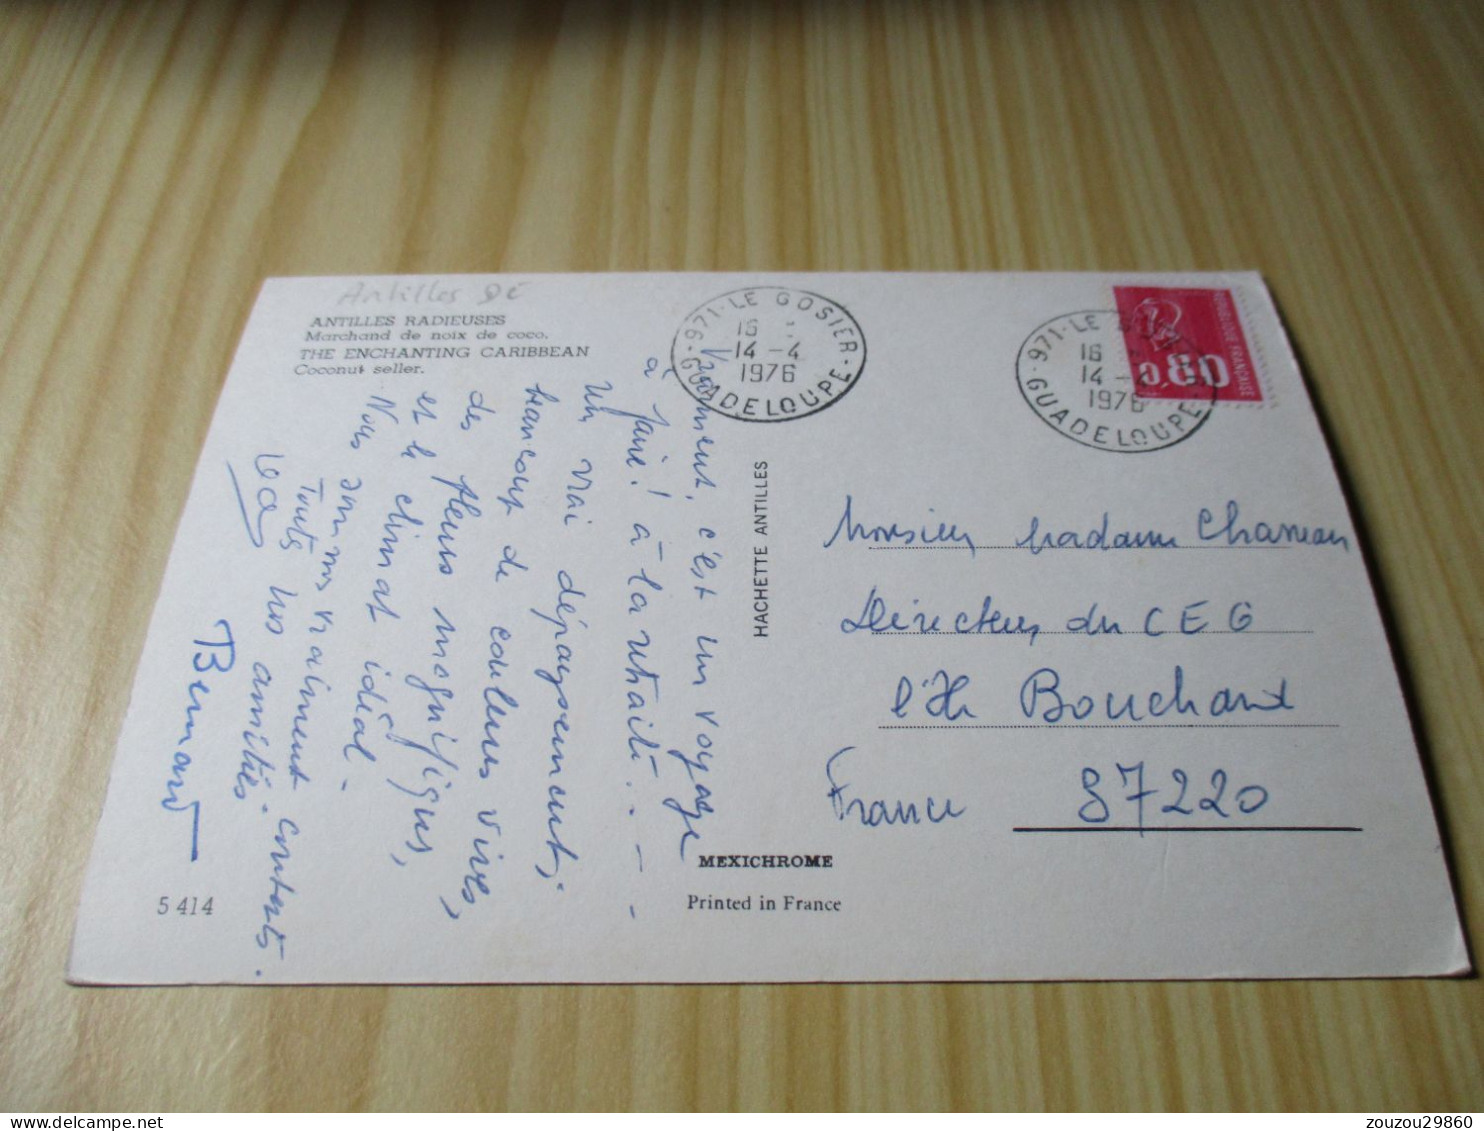 Antilles
ANTILLES RADIEUSES
Marchand de noix de coco.
THE ENCHANTING CARIBBEAN
Coconut seller.
971-LE GOSIER
16
14-4
1976
GUADELOUPE
971-LE GOSIER
16
14-4
1976
GUADELOUPE
REPUBLIQUE FRANÇAISE
0,80
Vraiment, c'est un voyage
à faire! à la retraite...--
Un vrai dépaysement,
beaucoup de couleurs vives,
des fleurs magnifiques,
et le climat idéal-
Nous sommes vraiment contents.
Toutes nos amitiés.
Bernard
HACHETTE ANTILLES
Monsieur Madame
Directeur du CEG
Bouchard
France 87220
MEXICHROME
Printed in France
5 414
zouzou29860